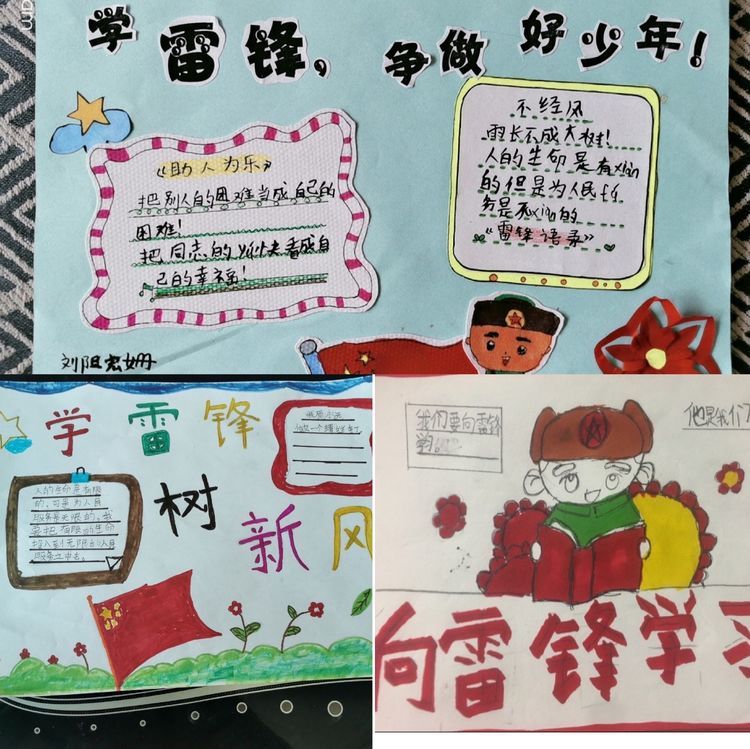 学雷锋，争做好少年！
《助人为乐》
把别人的困难当成自己的
困难！
把同志的愉快看成自
己的幸福！
不经风
雨长不成大树！
人的生命是有xian
的但是为人民fú
务是无xiàn的
“雷锋语录”
学雷锋
树新风
我愿永远
做一个螺丝钉
人的生命是有限
的，可是为人民
服务是无限的，我
要把有限的生命
投入到无限的为人民
服务之中去。
我们要向雷锋
学。
他是我们
向雷锋学习